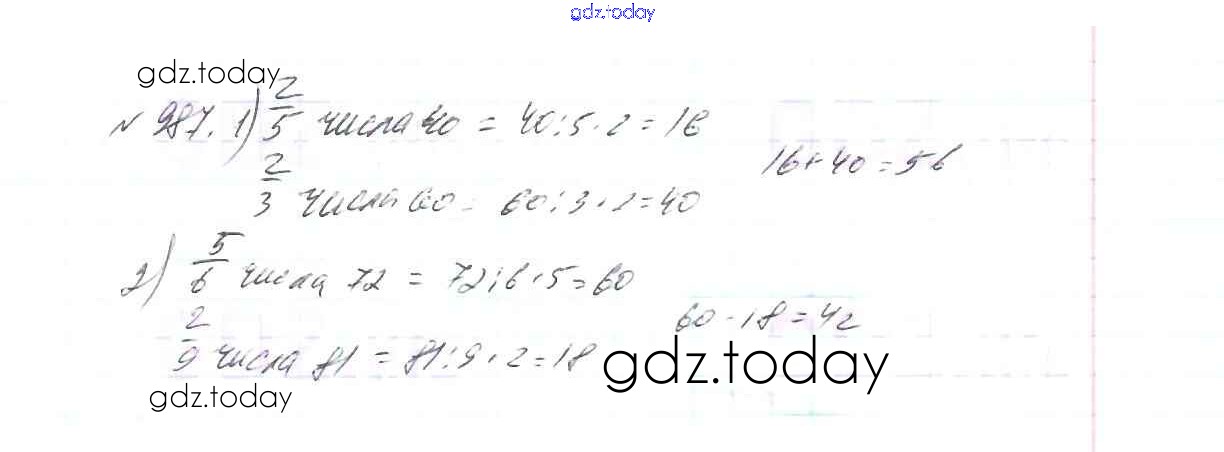 gdz.today
gdz.today
№ 987. 1) 2/5 числа 40 = 40:5·2=16
16+40=56
2/3 числа 60 = 60:3·2=40
2) 5/6 числа 72 = 72:6·5=60
60-18=42
2/9 числа 81 = 81:9·2=18
gdz.today
gdz.today